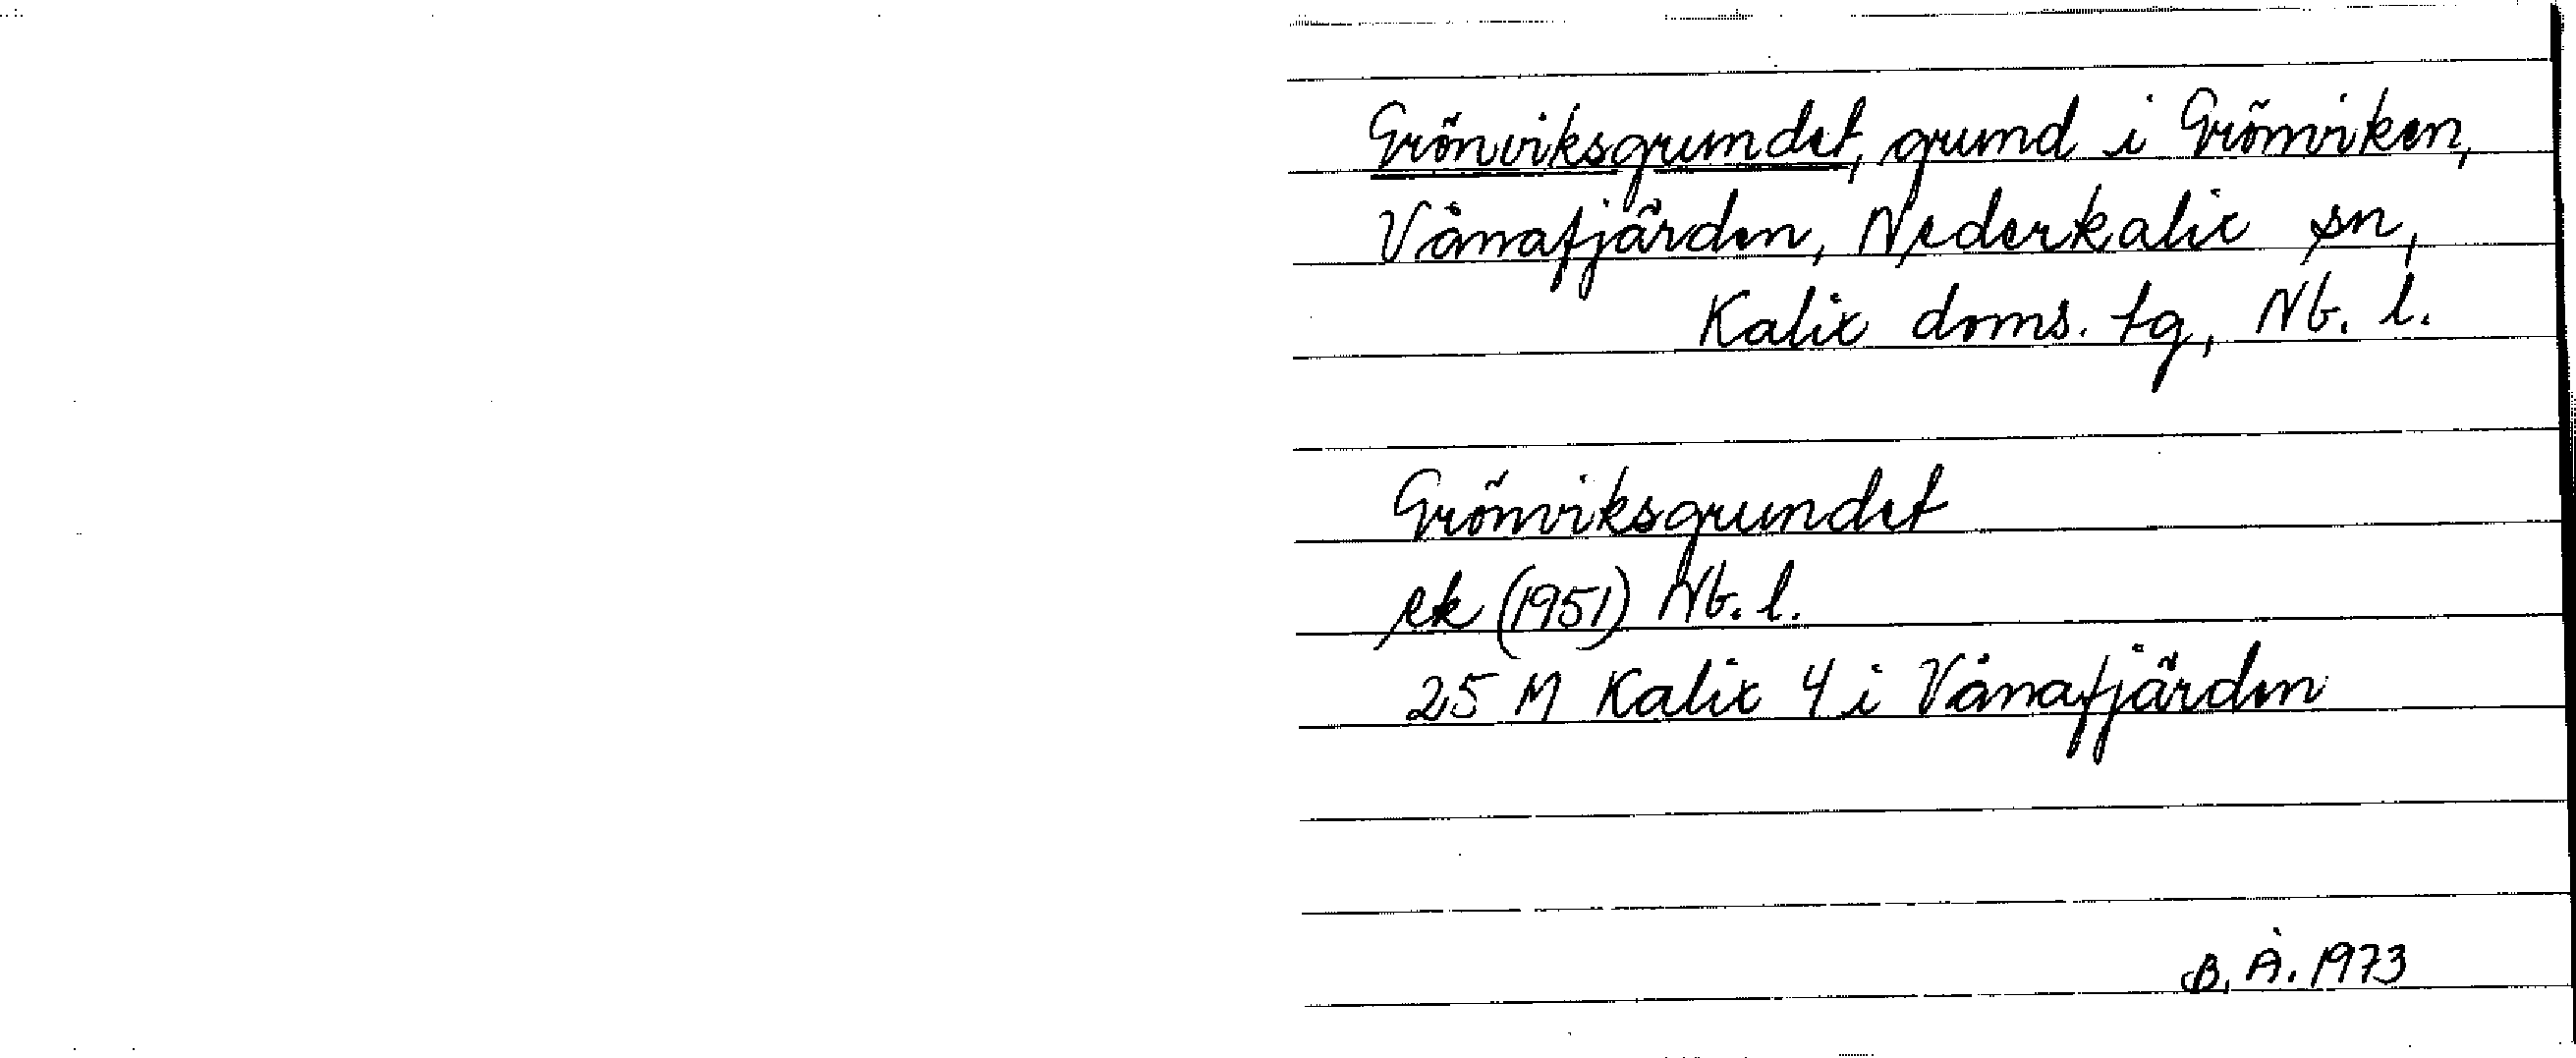 Grönviksgrundet, grund i Grönviken,
Vånafjärden, Nederkalix sn,
Kalix doms. tg, Nb. l.
Grönviksgrundet
ek (1951) Nb. l.
25 M Kalix 4 i Vånafjärden
B. Å. 1973